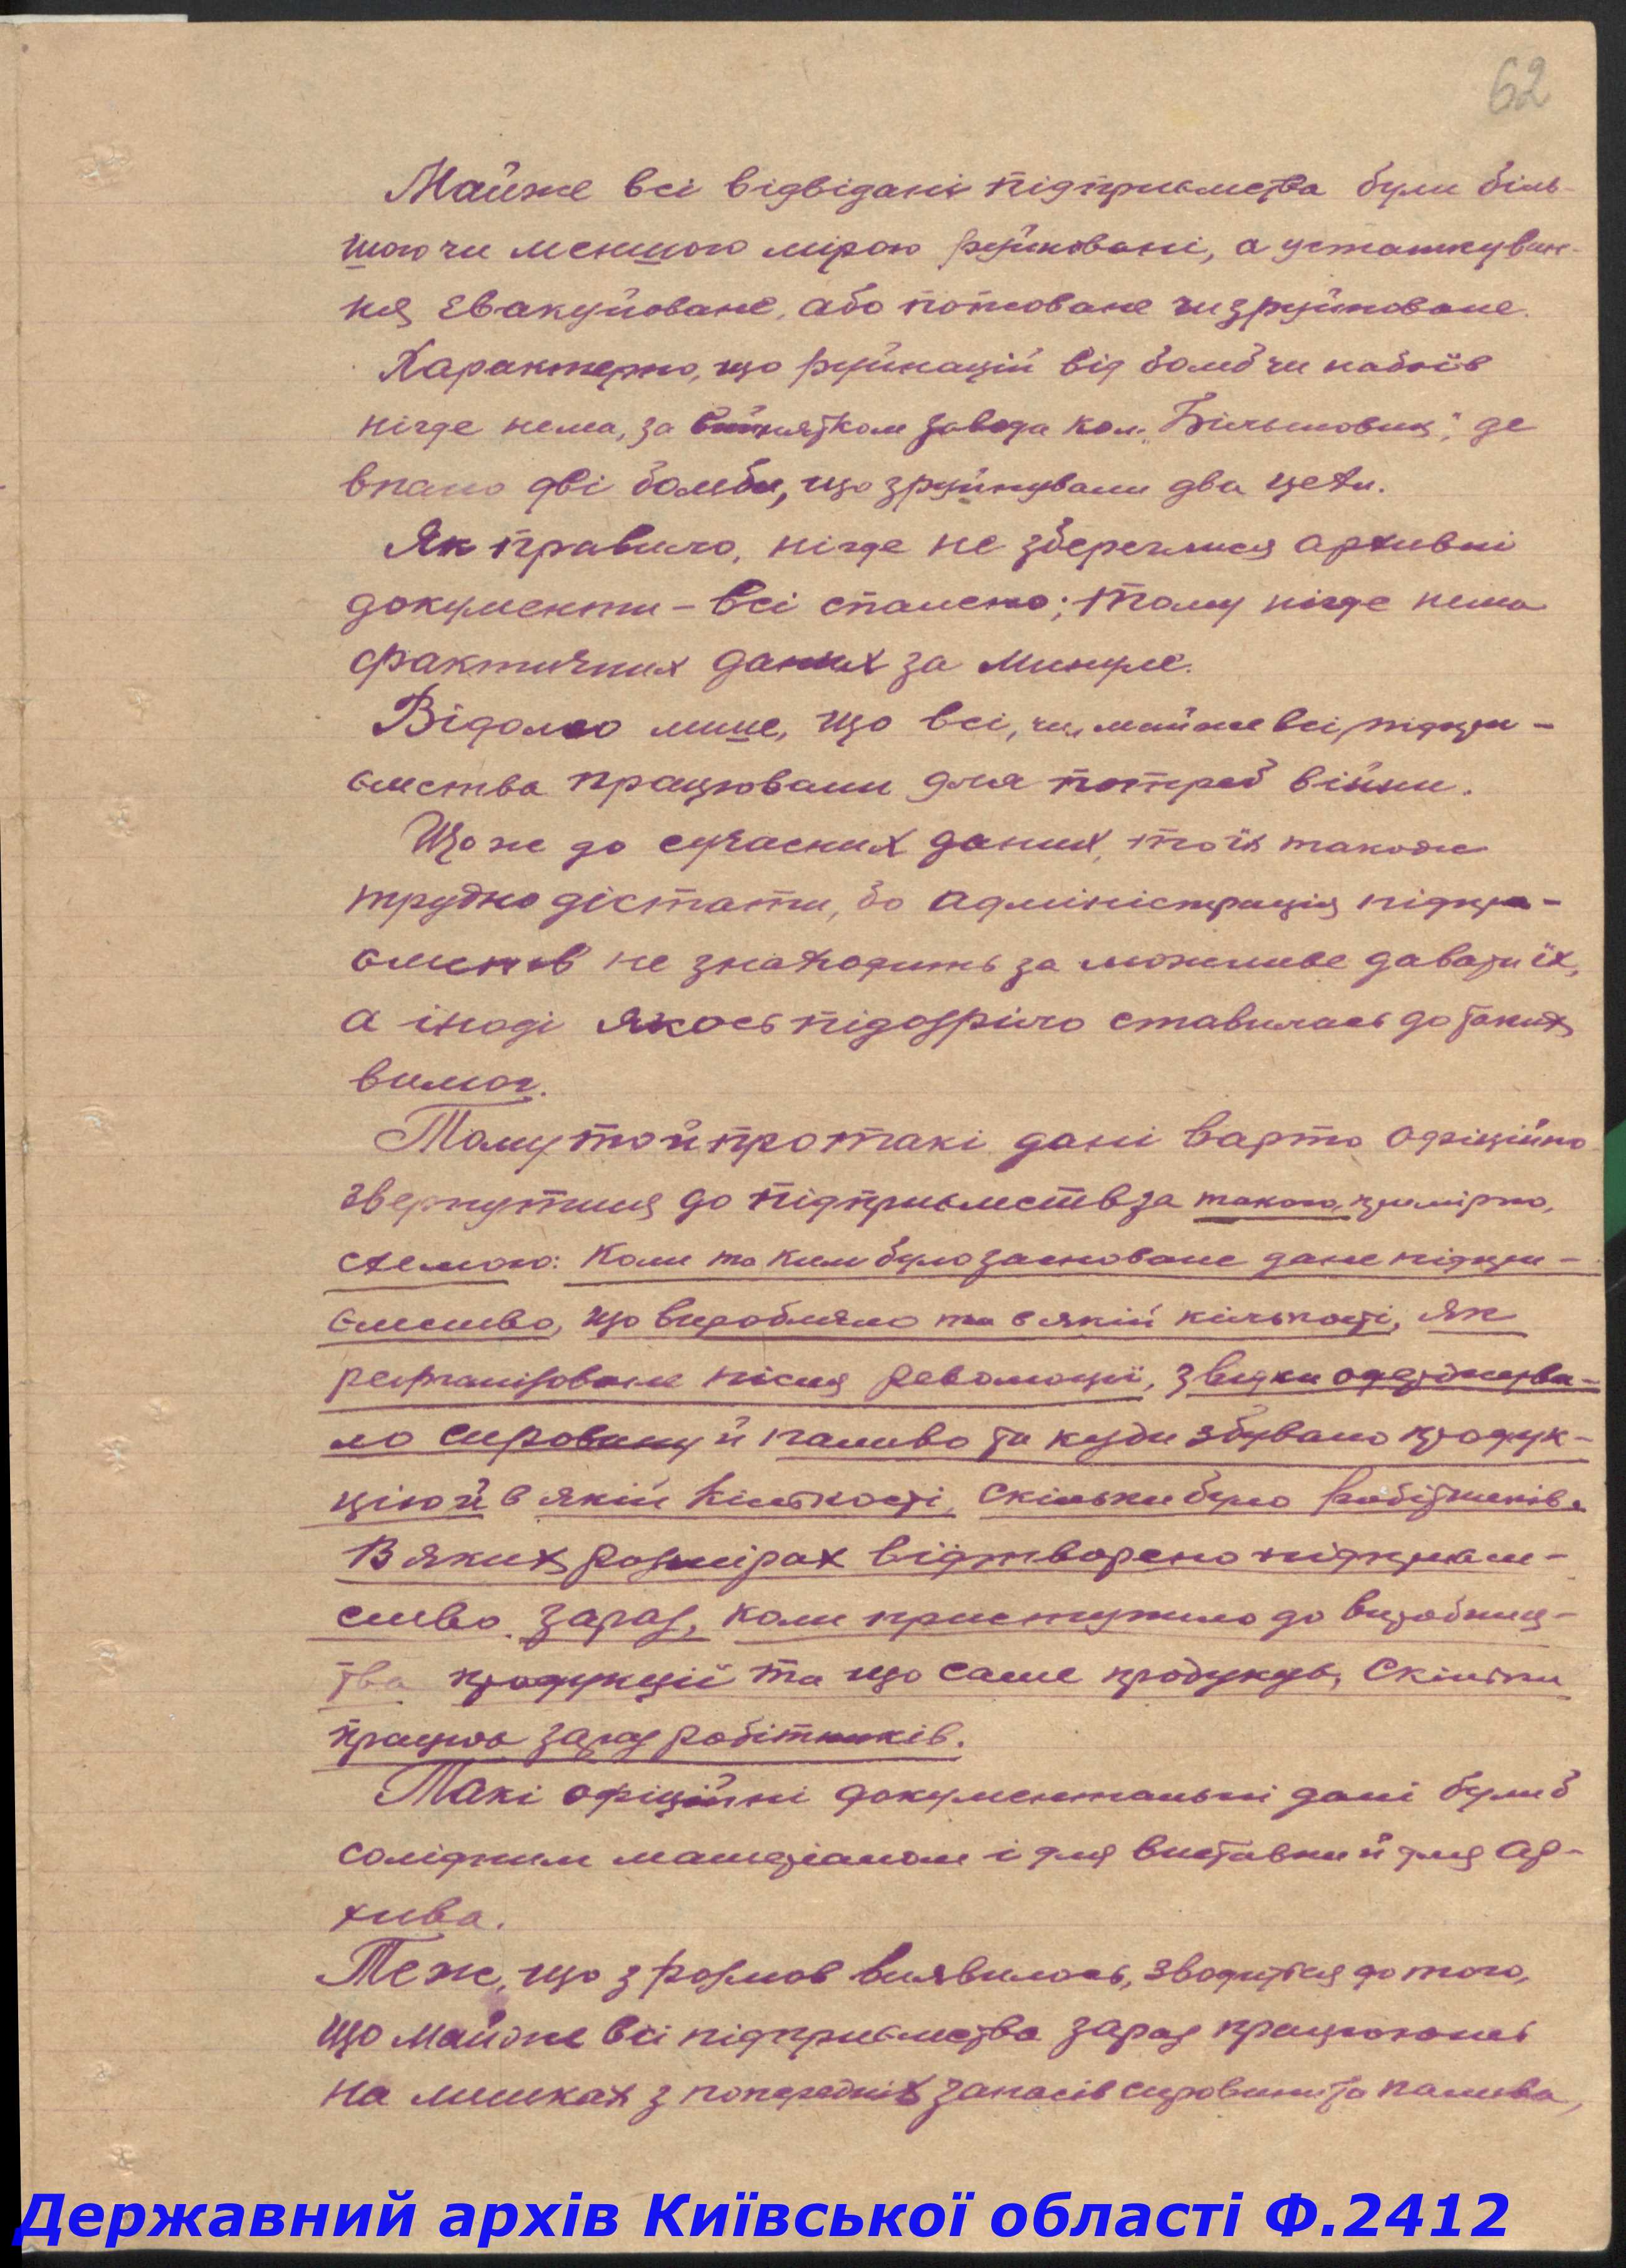 62
Майже всі відвідані підприємства були біль-
шою чи меншою мірою руйновані, а устаткуван-
ня евакуйоване, або потоване чи зруйноване.
Характерно, що руйнацій від бомб чи набоїв
нігде нема, за винятком завода кол. „Більшовик", де
впало дві бомби, що зруйнували два цехи.
Як правило, нігде не збереглися архивні
документи – всі спалено; тому нігде нема
фактичних даних за минуле.
Відомо лише, що всі, чи майже всі, підпри-
ємства працювали для потреб війни.
Що ж до сучасних даних, то їх також
трудно дістати, бо адміністрація підпри-
ємств не знаходить за можливе давати їх,
а іноді якось підозріло ставилась до таких
вимог.
Тому то й про такі дані варто офіційно
звернутися до підприємств за такою, примірно,
схемою: Коли та ким було засноване дане підпри-
ємство, що виробляло та в якій кількості, як
реорганізоване після революції, звідки одержува-
ло сировину й паливо та куди збувало продук-
цію й в якій кількості, скільки було робітників.
В яких розмірах відтворено підприєм-
ство зараз, коли приступило до виробниц-
тва продукції та що саме продукує, скільки
працює зараз робітників.
Такі офіційні документальні дані були б
солідним матеріалом і для виставки й для ар-
хива.
Те ж, що з розмов виявилось, зводиться до того,
що майже всі підприємства зараз працюють
на лишках з попередніх запасів сировини та палива,
Державний архів Київської області Ф.2412